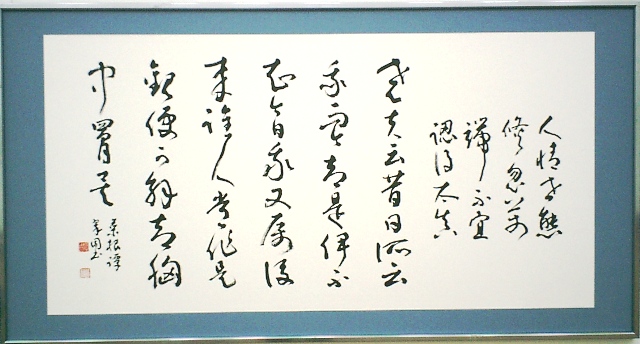 人情世態
倏忽万
端不宜
認得太真
堯夫云昔日所云
我而今却是伊不
知今日我又属後
来誰人常作是
観便可解却胸
中罥矣
菜根譚